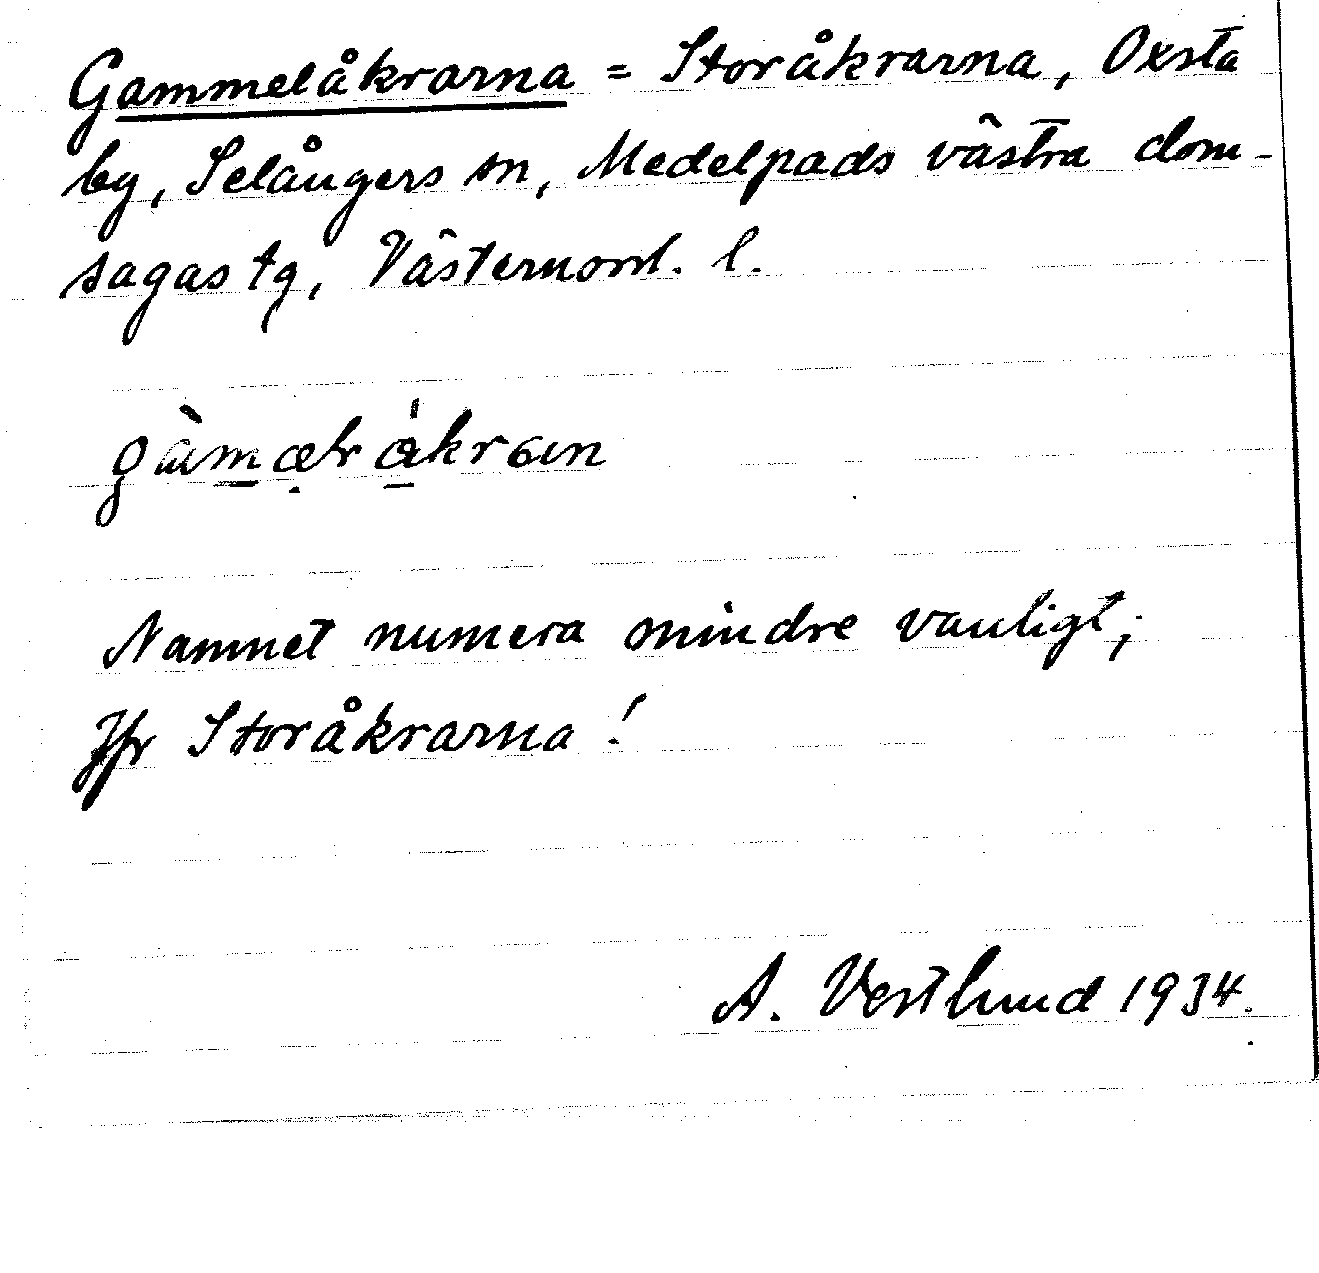 Gammelåkrarna = Storåkrarna, Oxsta
by, Selångers sn, Medelpads västra dom-
sagas tg, Västernorrl. l.
Namnet numera mindre vanligt;
Jfr Storåkrarna!
A. Vestlund 1934.